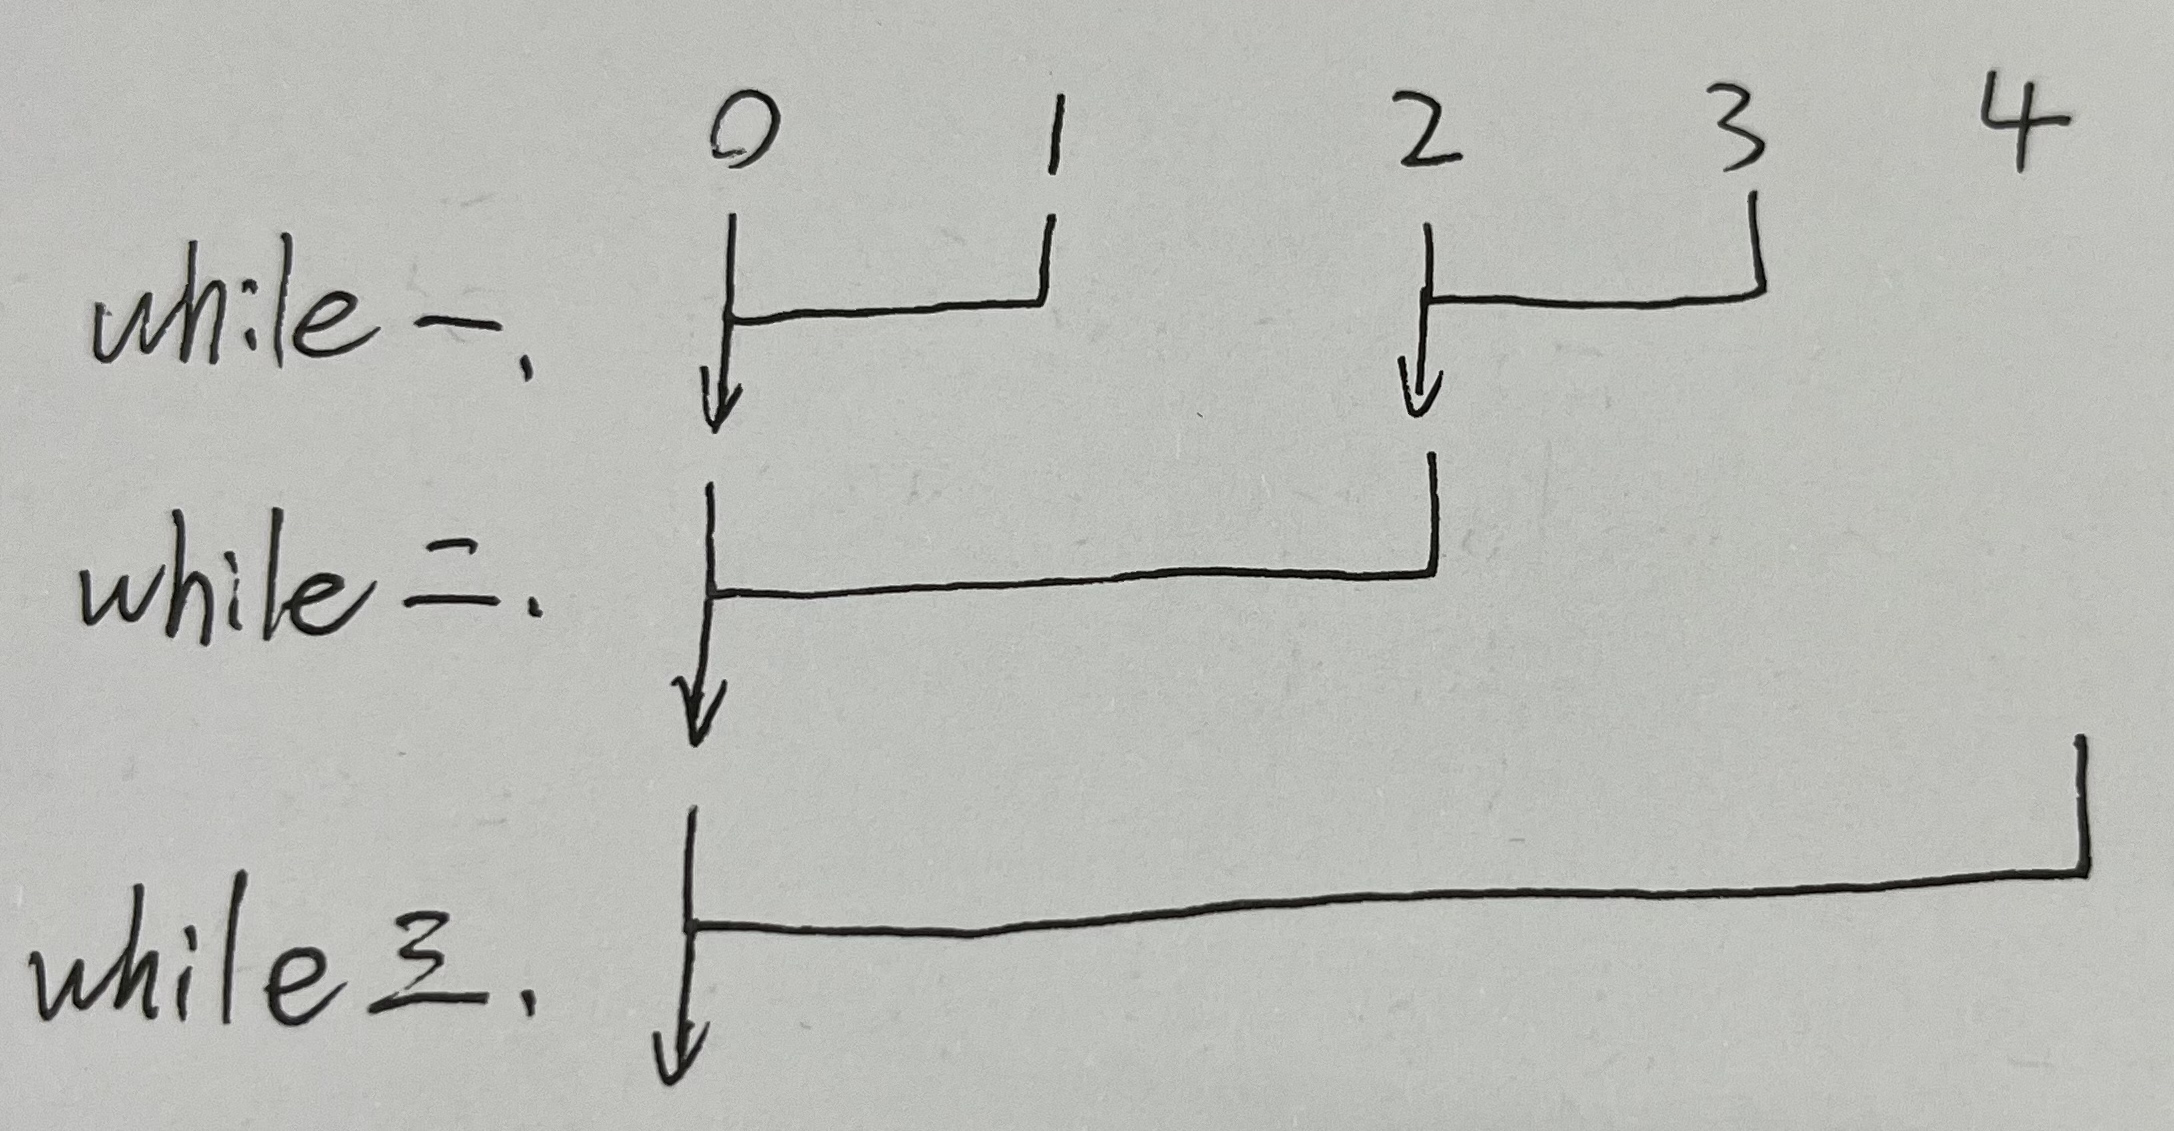 0 1 2 3 4
while 一.
while 二.
while 三.